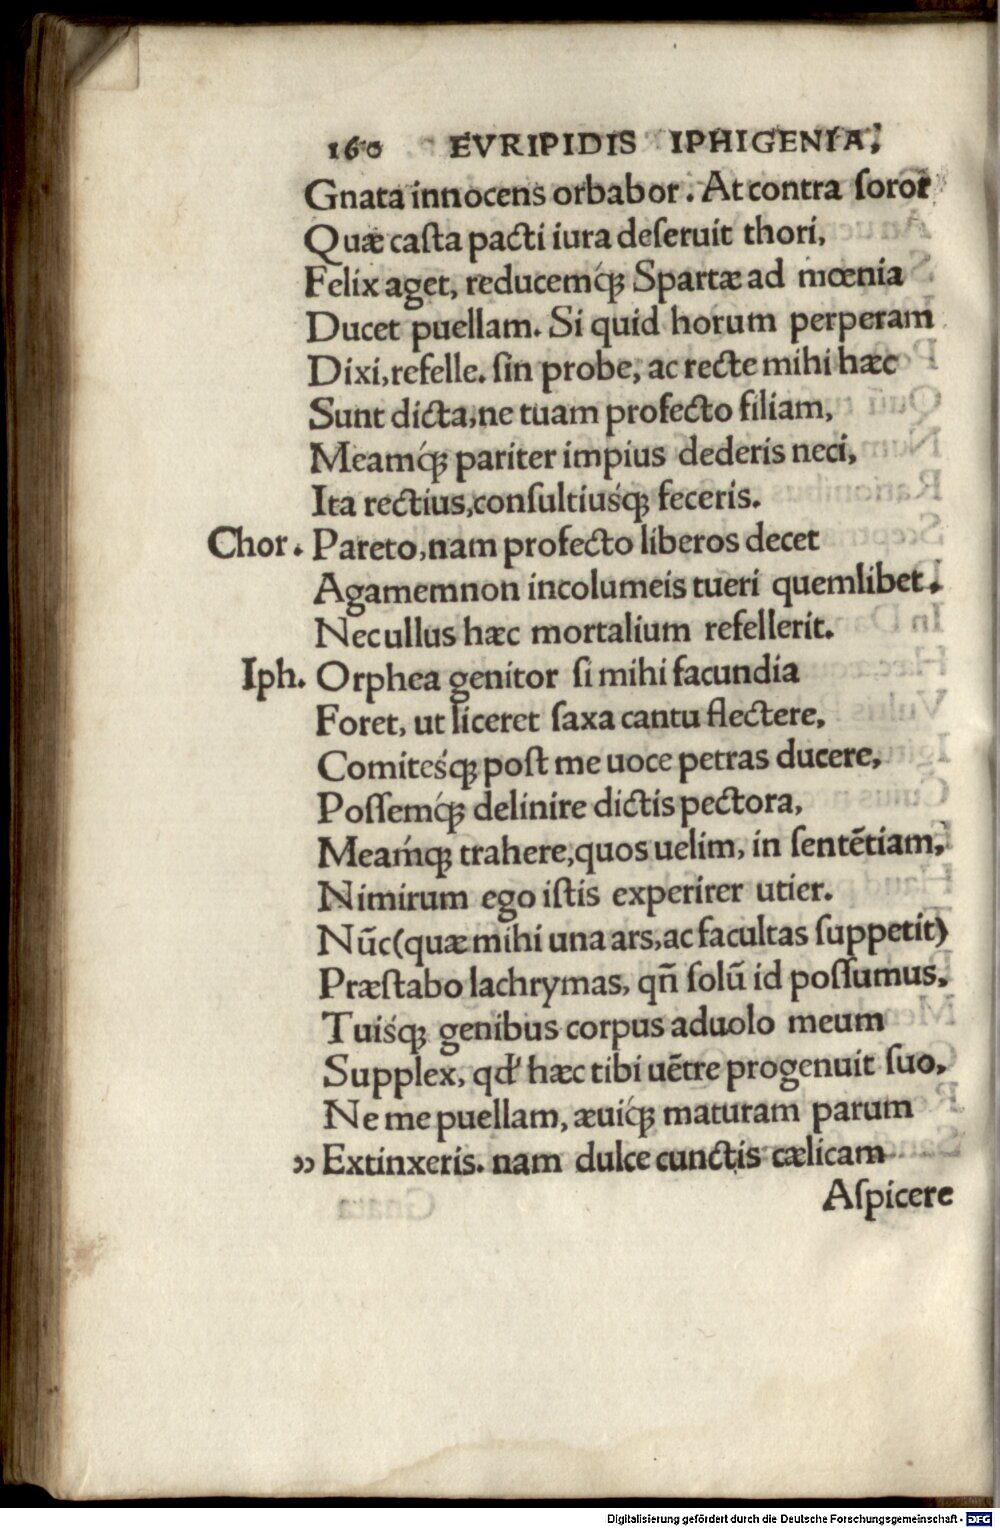 160 EVRIPIDIS IPHIGENIA,
Gnata innocens orbabor. At contra ſoror
Quæ caſta pacti iura deſeruit thori,
Felix aget, reducemq́ꝫ Spartæ ad mœnia
Ducet puellam. Si quid horum perperam
Dixi, refelle. ſin probe, ac recte mihi hæc
Sunt dicta, ne tuam profecto filiam,
Meamq́ꝫ pariter impius dederis neci,
Ita rectius, conſultiusq́ꝫ feceris.
Chor. Pareto, nam profecto liberos decet
Agamemnon incolumeis tueri quemlibet.
Nec ullus hæc mortalium refellerit.
Iph. Orphea genitor ſi mihi facundia
Foret, ut liceret ſaxa cantu flectere,
Comitesq́ꝫ poſt me uoce petras ducere,
Poſſemq́ꝫ delinire dictis pectora,
Meamq́ꝫ trahere, quos uelim, in ſentētiam,
Nimirum ego iſtis experirer utier.
Nūc (quæ mihi una ars, ac facultas ſuppetit)
Præſtabo lachrymas, qñ ſolū id poſſumus,
Tuisq́ꝫ genibus corpus aduolo meum
Supplex, qd' hæc tibi uētre progenuit ſuo,
Ne me puellam, æuiq́ꝫ maturam parum
„ Extinxeris. nam dulce cunctis cælicam
Aſpicere
Digitalisierung gefördert durch die Deutsche Forschungsgemeinschaft - DFG